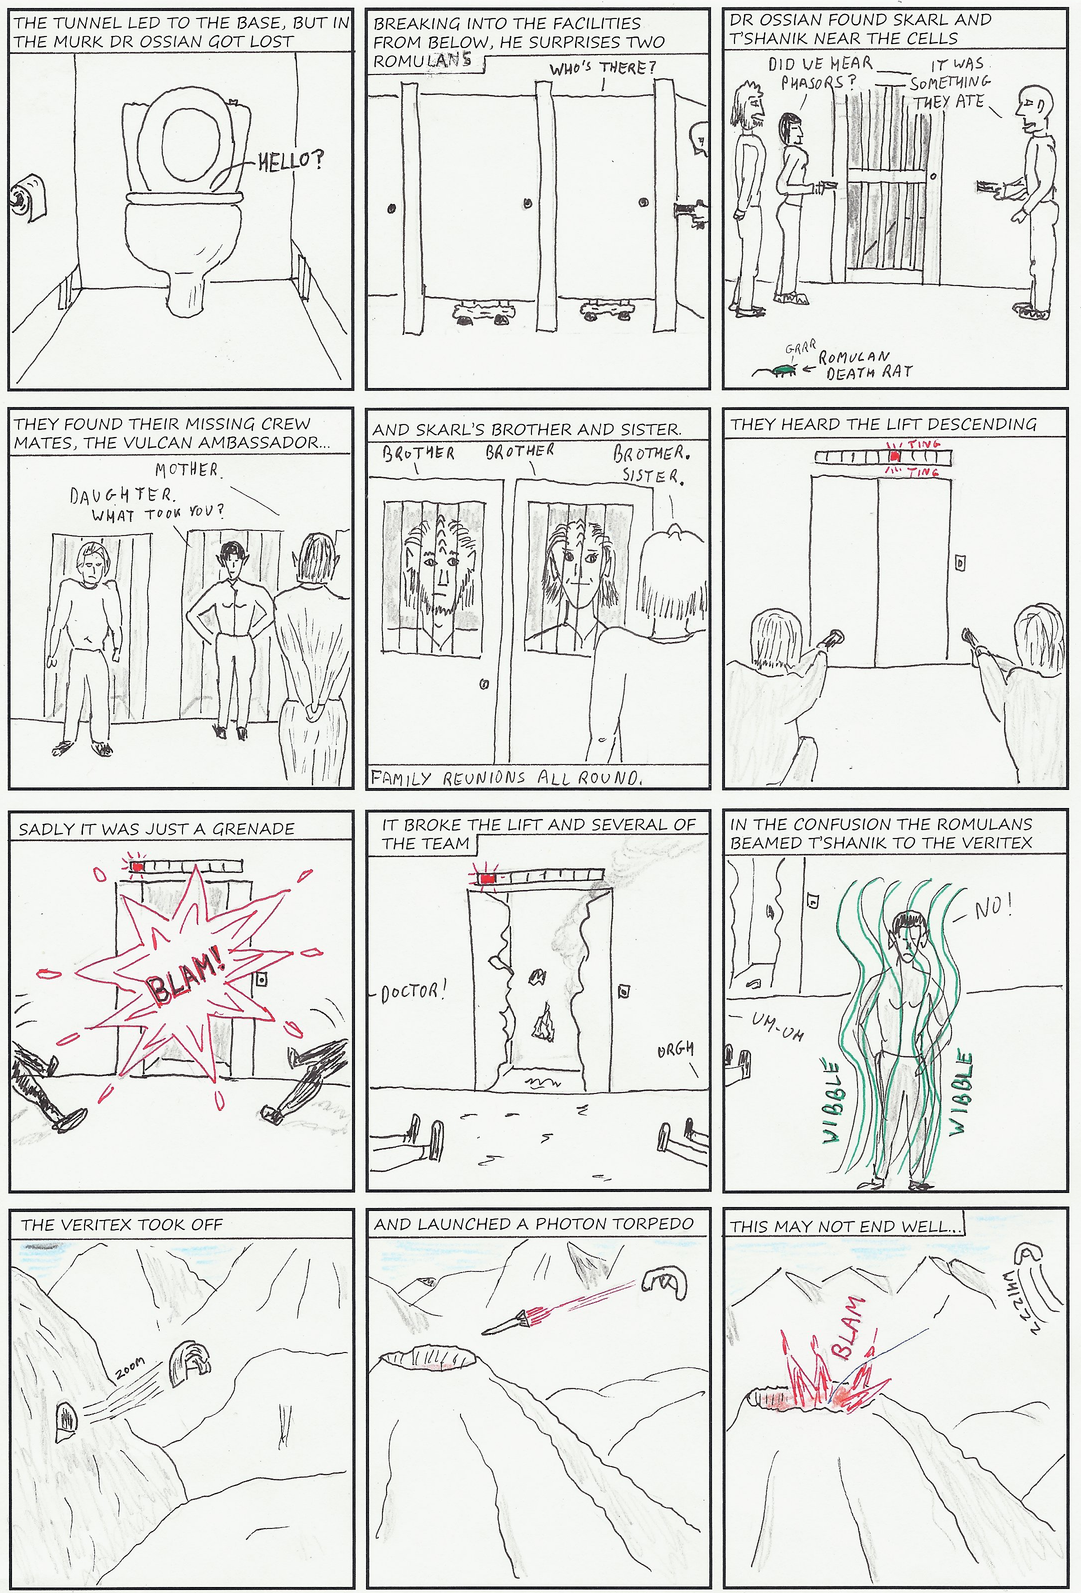 THE TUNNEL LED TO THE BASE, BUT IN
THE MURK DR OSSIAN GOT LOST
HELLO?
BREAKING INTO THE FACILITIES
FROM BELOW, HE SURPRISES TWO
ROMULANS
WHO'S THERE?
DR OSSIAN FOUND SKARL AND
T'SHANIK NEAR THE CELLS
DID WE HEAR
PHASORS?
IT WAS
SOMETHING
THEY ATE
GRRR
ROMULAN
DEATH RAT
THEY FOUND THEIR MISSING CREW
MATES, THE VULCAN AMBASSADOR...
MOTHER.
DAUGHTER.
WHAT TOOK YOU?
AND SKARL'S BROTHER AND SISTER.
BROTHER
BROTHER
BROTHER.
SISTER.
FAMILY REUNIONS ALL ROUND.
THEY HEARD THE LIFT DESCENDING
TING
TING
SADLY IT WAS JUST A GRENADE
BLAM!
IT BROKE THE LIFT AND SEVERAL OF
THE TEAM
DOCTOR!
ORGH
IN THE CONFUSION THE ROMULANS
BEAMED T'SHANIK TO THE VERITEX
NO!
UM-UM
WIBBLE
WIBBLE
THE VERITEX TOOK OFF
ZOOM
AND LAUNCHED A PHOTON TORPEDO
THIS MAY NOT END WELL...
BLAM
WHIZZZZ